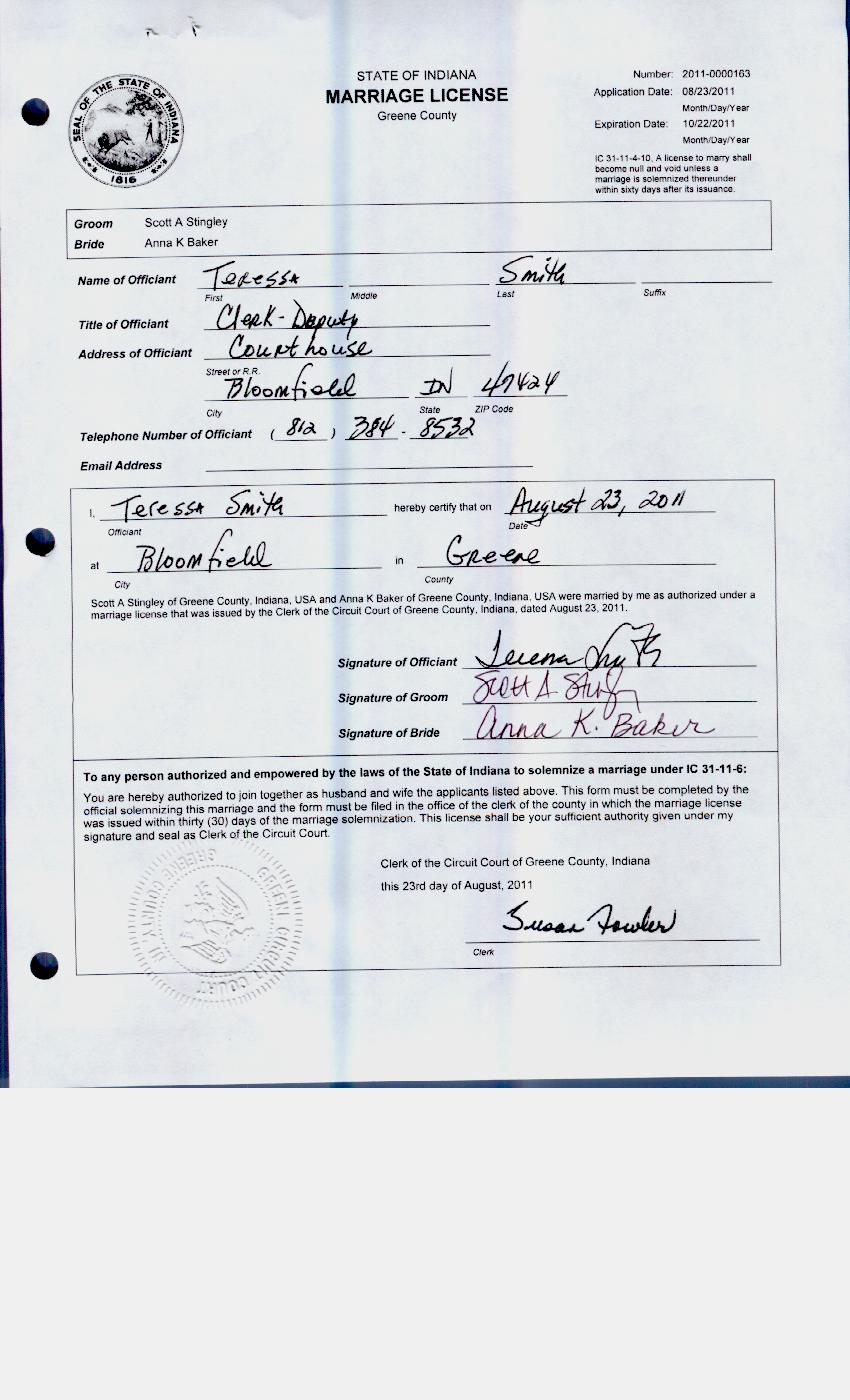 STATE OF INDIANA
MARRIAGE LICENSE
Greene County
Number: 2011-0000163
Application Date: 08/23/2011
Month/Day/Year
Expiration Date: 10/22/2011
Month/Day/Year
IC 31-11-4-10, A license to marry shall
become null and void unless a
marriage is solemnized thereunder
within sixty days after its issuance.
SEAL OF THE STATE OF INDIANA
1816
Groom Scott A Stingley
Bride Anna K Baker
Name of Officiant Teressa Smith
First Middle Last Suffix
Title of Officiant Clerk - Deputy
Address of Officiant Courthouse
Street or R.R.
Bloomfield IN 47424
City State ZIP Code
Telephone Number of Officiant ( 812 ) 384 - 8532
Email Address
I, Teressa Smith hereby certify that on August 23, 2011
Officiant Date
at Bloomfield in Greene
City County
Scott A Stingley of Greene County, Indiana, USA and Anna K Baker of Greene County, Indiana, USA were married by me as authorized under a
marriage license that was issued by the Clerk of the Circuit Court of Greene County, Indiana, dated August 23, 2011.
Signature of Officiant Teressa Smith
Signature of Groom Scott A Stingley
Signature of Bride Anna K. Baker
To any person authorized and empowered by the laws of the State of Indiana to solemnize a marriage under IC 31-11-6:
You are hereby authorized to join together as husband and wife the applicants listed above. This form must be completed by the
official solemnizing this marriage and the form must be filed in the office of the clerk of the county in which the marriage license
was issued within thirty (30) days of the marriage solemnization. This license shall be your sufficient authority given under my
signature and seal as Clerk of the Circuit Court.
Clerk of the Circuit Court of Greene County, Indiana
this 23rd day of August, 2011
Susan Fowler
Clerk
GREENE CIRCUIT COURT
GREENE COUNTY,